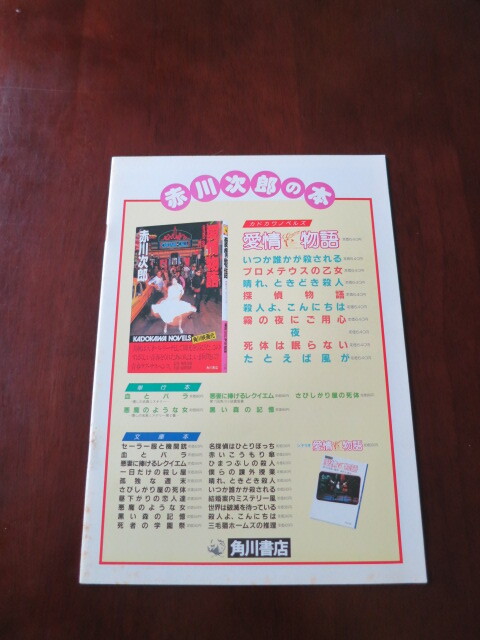 赤川次郎の本
赤川次郎
KADOKAWA NOVELS
カドカワノベルズ
愛情物語
いつか誰かが殺される
プロメテウスの乙女
晴れ、ときどき殺人
探偵物語
殺人よ、こんにちは
霧の夜にご用心
夜
死体は眠らない
たとえば風が
単行本
血とバラ
悪妻に捧げるレクイエム
さびしがり屋の死体
悪魔のような女
黒い森の記憶
文庫本
セーラー服と機関銃
血とバラ
悪妻に捧げるレクイエム
一日だけの殺し屋
孤独な週末
さびしがり屋の死体
昼下がりの恋人達
悪魔のような女
黒い森の記憶
死者の学園祭
名探偵はひとりぼっち
赤いこうもり傘
ひまつぶしの殺人
僕らの課外授業
晴れ、ときどき殺人
いつか誰かが殺される
結婚案内ミステリー風
世界は破滅を待っている
殺人よ、こんにちは
三毛猫ホームズの推理
愛情物語
角川書店